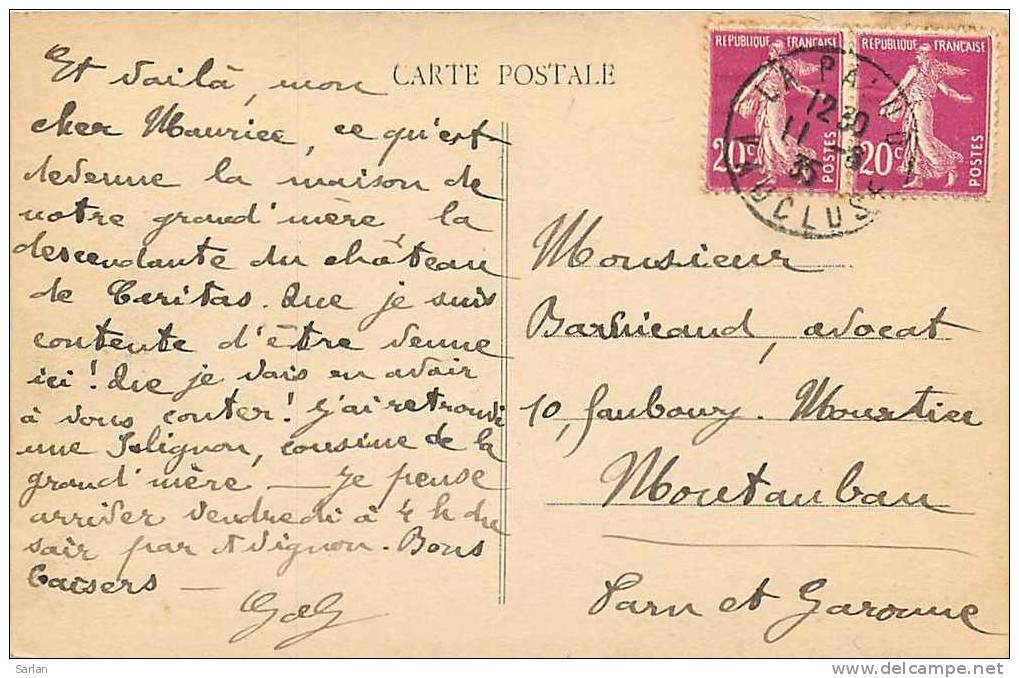 CARTE POSTALE
Et voilà, mon
cher Maurice, ce qu'est
devenue la maison de
notre grand'mère, la
descendante du château
de Caritas. Que je suis
contente d'être venue
ici! Que je vais en avoir
à vous conter! J'ai retrouvé
une Isignon, cousine de la
grand'mère — Je pense
arriver vendredi à 4 h du
soir par Avignon. Bons
baisers —
REPUBLIQUE FRANÇAISE
20c POSTES
REPUBLIQUE FRANÇAISE
20c POSTES
LA PALUD
12 30
11 -9
35
VAUCLUSE
Monsieur
avocat
10, faubourg. Moustier
Montauban
Tarn et Garonne
Sarlan
delcampe.net